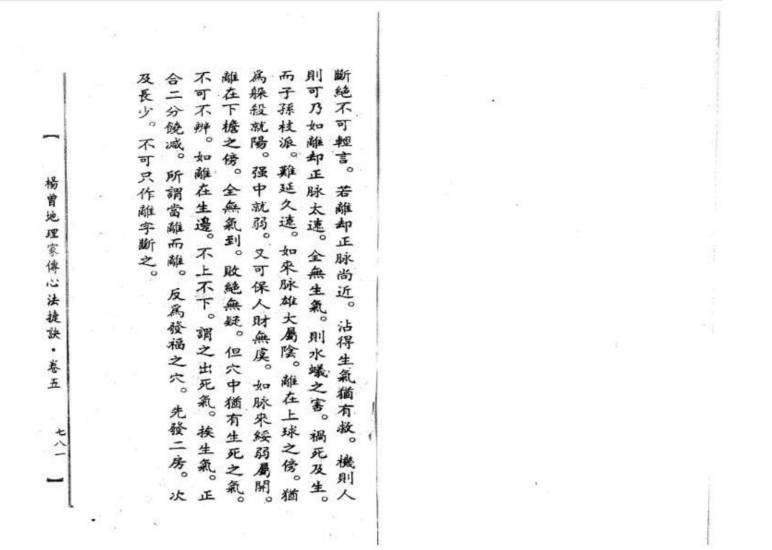 斷絕不可輕言。若離却正脉尚近。沾得生氣猶有救。機則人
則可乃如離却正脉太遠。全無生氣。則水蟻之害。禍死及生。
而子孫枝派。難延久遠。如來脉雄大屬陰。離在上球之傍。猶
爲躲殺就陽。强中就弱。又可保人財無虞。如脉來綏弱屬開。
離在下檐之傍。全無氣到。敗絕無疑。但穴中猶有生死之氣。
不可不辨。如離在生邊。不上不下。謂之出死氣。挨生氣。正
合二分饒减。所謂當離而離。反爲發福之穴。先發二房。次
及長少。不可只作離字斷之。
【楊曾地理家傳心法捷訣·卷五 七八一】